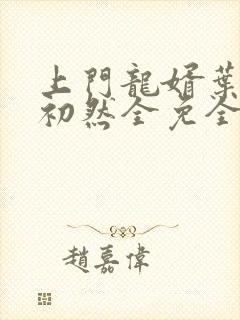 上門龍婿葉
初然全免全
趙嘉偉